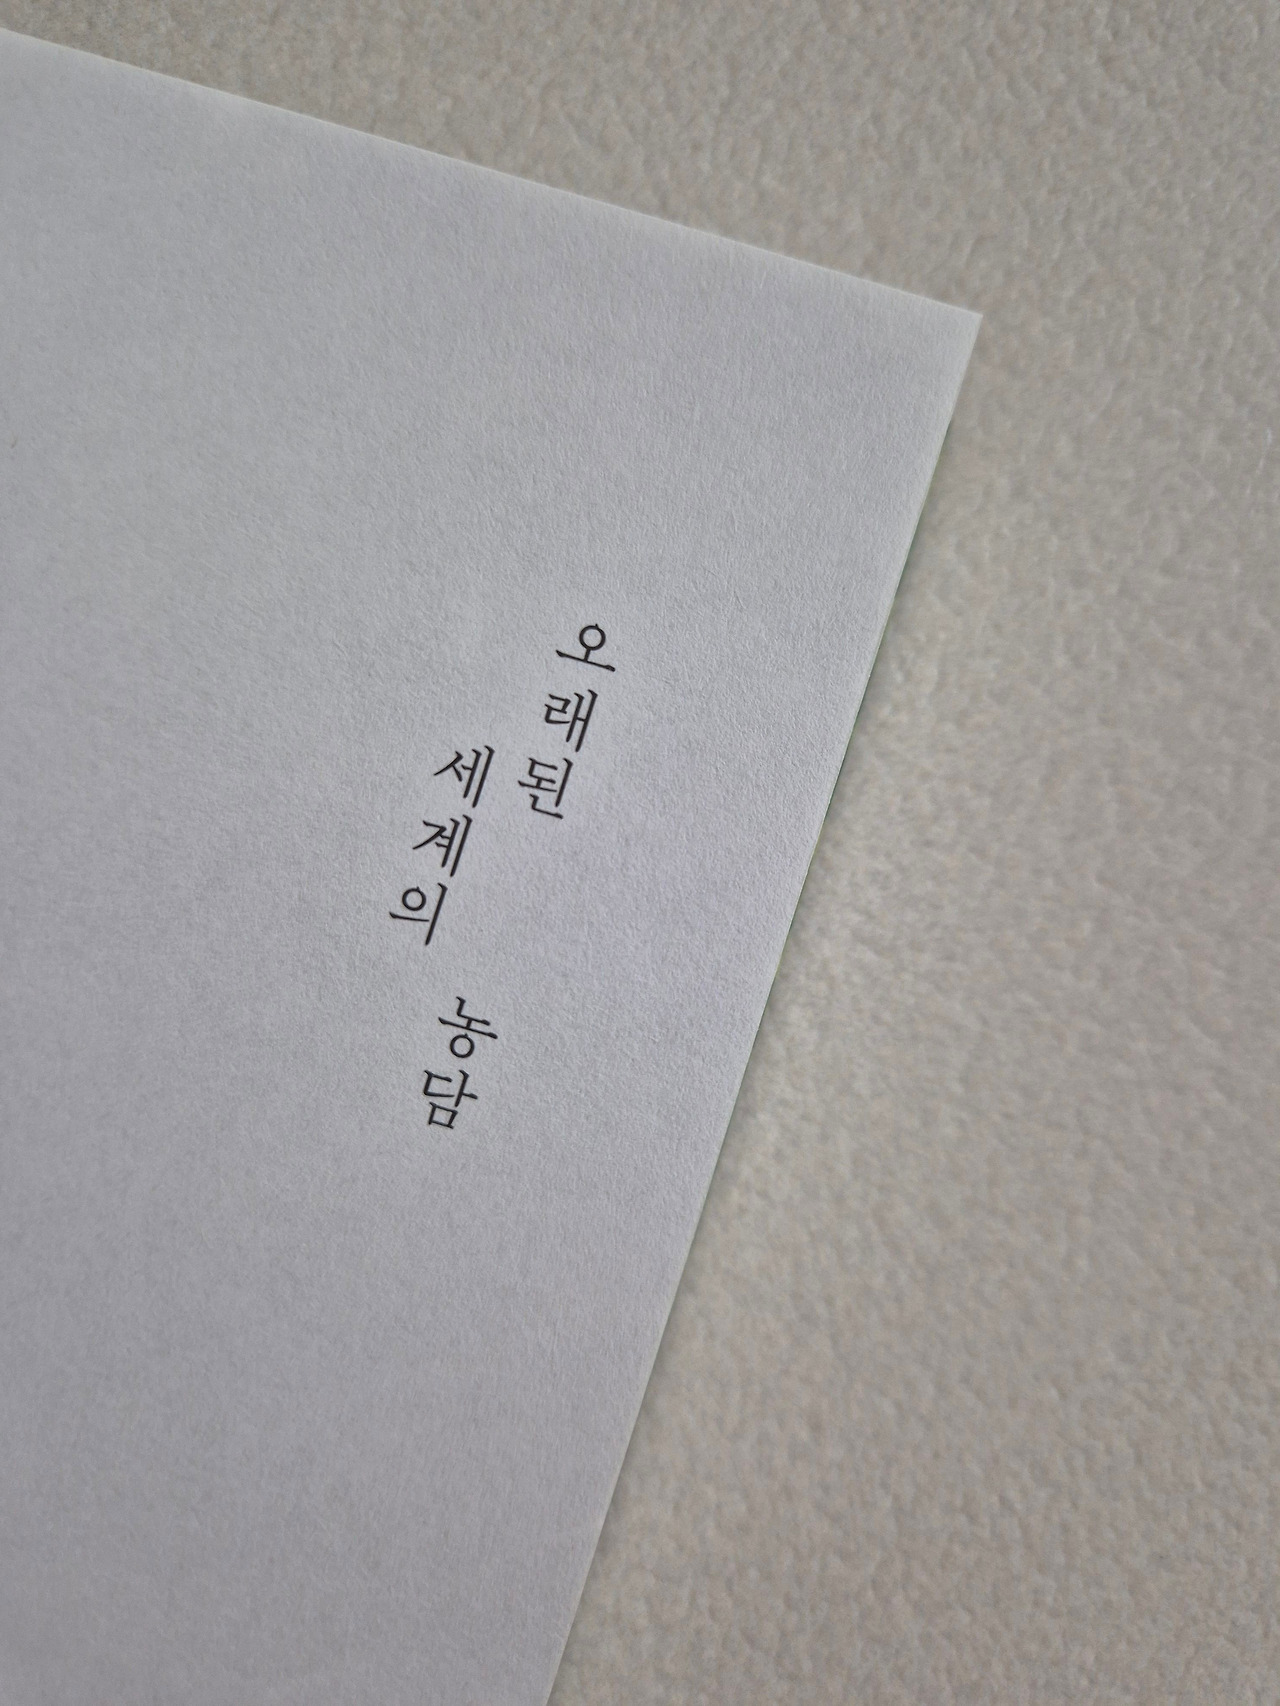 오래된
세계의
농담